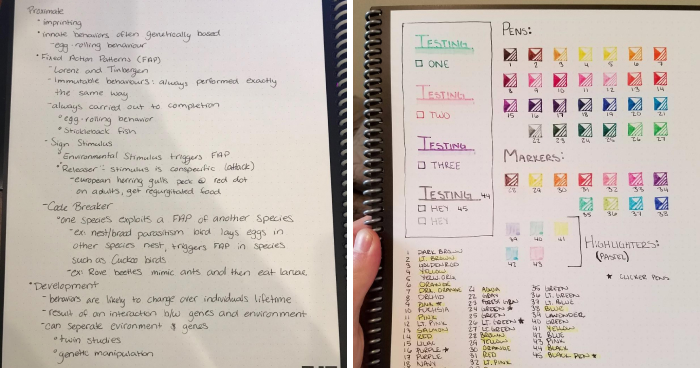 Proximate
• imprinting
• innate behaviors often genetically based
- egg-rolling behaviour
• Fixed Action Patterns (FAP)
- Lorenz and Tinbergen
- Immutable behaviours: always performed exactly
the same way
- always carried out to completion
• egg-rolling behavior
• Stickleback fish
- Sign Stimulus
• Environmental Stimulus triggers FAP
• Releaser: stimulus is conspecific (attack)
- european herring gulls peck @ red dot
on adults, get regurgitated food
- Code Breaker
• one species exploits a FAP of another species
- ex: nest/brood parasitism bird lays eggs in
other species nest, triggers FAP in species
such as Cuckoo birds
- ex: Rove beetles mimic ants and then eat larvae
• Development
- behaviors are likely to change over individuals lifetime
- result of an interaction b/w genes and environment
- can seperate evironment & genes
• twin studies
• genetic manipulation
TESTING
ONE
TESTING
TWO
TESTING
THREE
TESTING 44
HEY 45
HEY
PENS:
1 2 3 4 5 6 7
8 9 10 11 12 13 14
15 16 17 18 19 20 21
22 23 24 25 26 27
MARKERS:
28 29 30 31 32 33 34
35 36 37 38
39 40 41
42 43
HIGHLIGHTERS:
(PASTEL)
★ CLICKER PENS
1 DARK BROWN
2 LT. BROWN
3 GOLDENROD
4 YELLOW
5 YELL. ORG
6 ORANGE
7 DRK. ORANGE
8 ORCHID
9 PINK ★
10 FUCHSIA
11 PINK
12 LT. PINK
13 SALMON
14 RED
15 LILAC
16 PURPLE ★
17 PURPLE
18 NAVY
21 AQUA
22 GRAY
24 GREEN ★
25 GREEN
26 LT. GREEN ★
27 LT. GREEN
28 BROWN
29 YELLOW
30 ORANGE
31 RED
32 LT. PINK
35 GREEN
36 LT. GREEN
37 LT. BLUE
38 BLUE
39 LAVENDER
40 GREEN
41 YELLOW
42 BLUE
43 PINK
44 BLACK
45 BLACK PEN ★